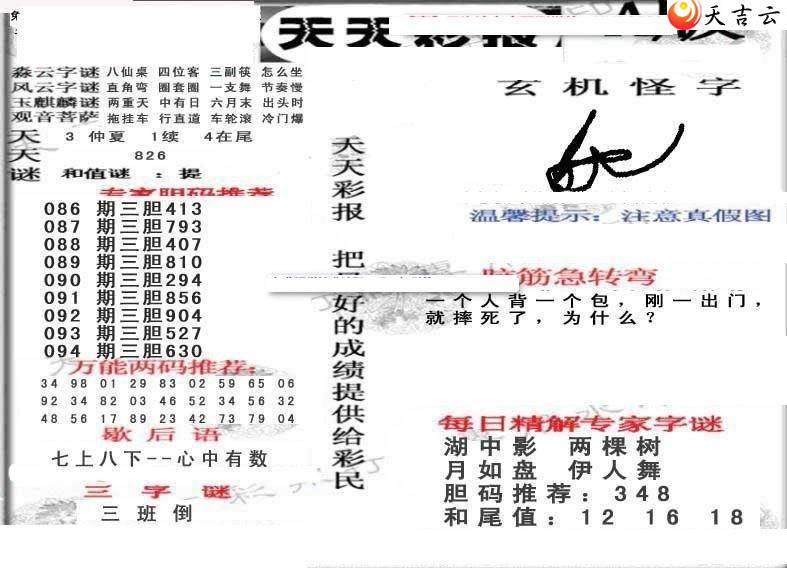 天天彩报
天吉云
淼云字谜 八仙桌 四位客 三副筷 怎么坐
风云字谜 直角弯 圈套圈 一支舞 节奏慢
玉麒麟谜 两重天 中有日 六月末 出头时
观音菩萨 拖挂车 行直道 车轮滚 冷门爆
天 3 仲夏 1续 4在尾
天 826
谜 和值谜 : 提
专家胆码推荐
086 期三胆413
087 期三胆793
088 期三胆407
089 期三胆810
090 期三胆294
091 期三胆856
092 期三胆904
093 期三胆527
094 期三胆630
万能两码推荐:
34 98 01 29 83 02 59 65 06
92 34 82 03 46 52 34 56 32
48 56 17 89 23 42 73 79 04
歇后语
七上八下--心中有数
三字谜
三班倒
天天彩报 把 好的成绩提供给彩民
玄机怪字
温馨提示: 注意真假图
脑筋急转弯
一个人背一个包,刚一出门,
就摔死了,为什么?
每日精解专家字谜
湖中影 两棵树
月如盘 伊人舞
胆码推荐: 348
和尾值: 12 16 18